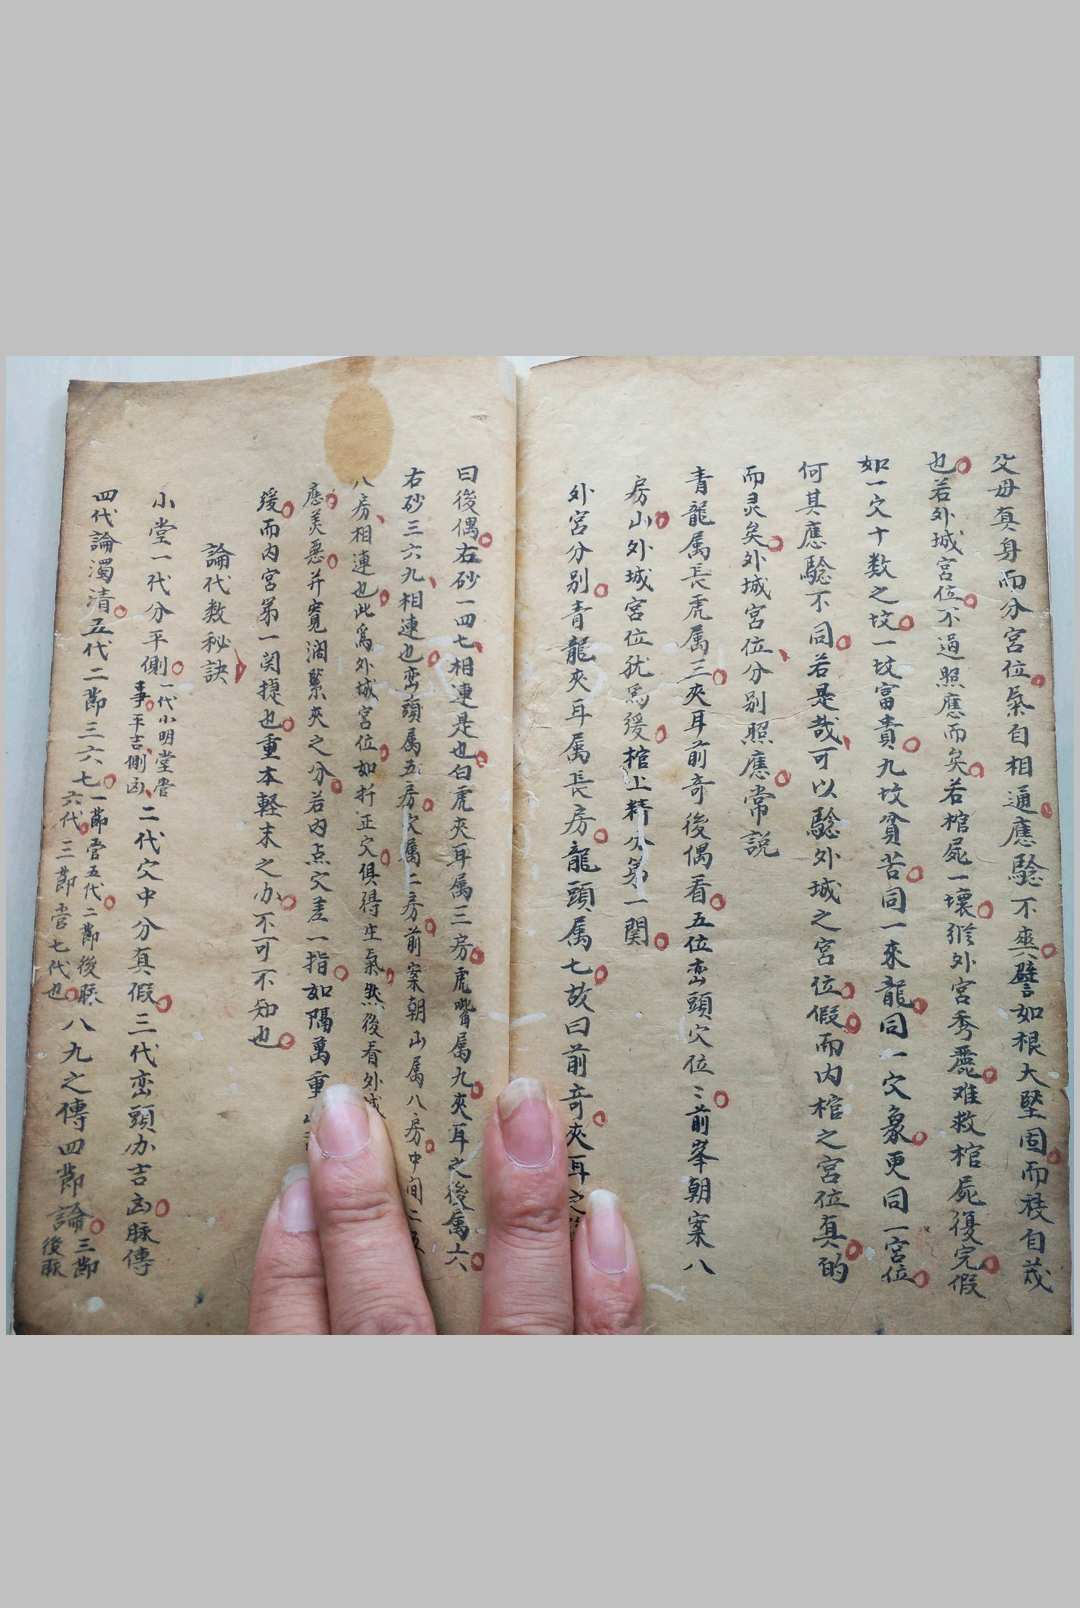 父母真身而分宮位氣自相通應驗不爽譬如根大堅固而枝自茂
也若外城宮位不過照應而矣若棺屍一壞縱外宮秀麗难救棺屍復完假
如一穴十数之坟一坟富貴九坟貧苦同一來龍同一穴象更同一宮位
何其應驗不同若是哉可以驗外城之宮位假而内棺之宮位真的
而灵矣外城宮位分别照應常説
青龍属長虎属三夾耳前奇後偶看五位巒頭穴位二前峯朝案八
房山外城宮位犹為緩棺上精分第一関
外宮分别青龍夾耳属長房龍頭属七故曰前奇夾耳之
曰後偶右砂一四七相連是也白虎夾耳属三房虎嘴属九夾耳之後属六
右砂三六九相連也巒頭属五房穴属二房前案朝山属八房中间二五
八房相連也此爲外城宮位如扦正穴俱得生氣然後看外城
應美惡并寬濶緊夾之分若内点穴差一指如隔萬重
緩而内宮第一関捷也重本輕末之办不可不知也
論代数秘訣
小堂一代分平側一代小明堂管事平吉側凶二代穴中分真假三代巒頭办吉凶脉傳
四代論濁清五代二節三六七一節管五代二節後脉六代三節管七代也八九之傳四節論三節後脉